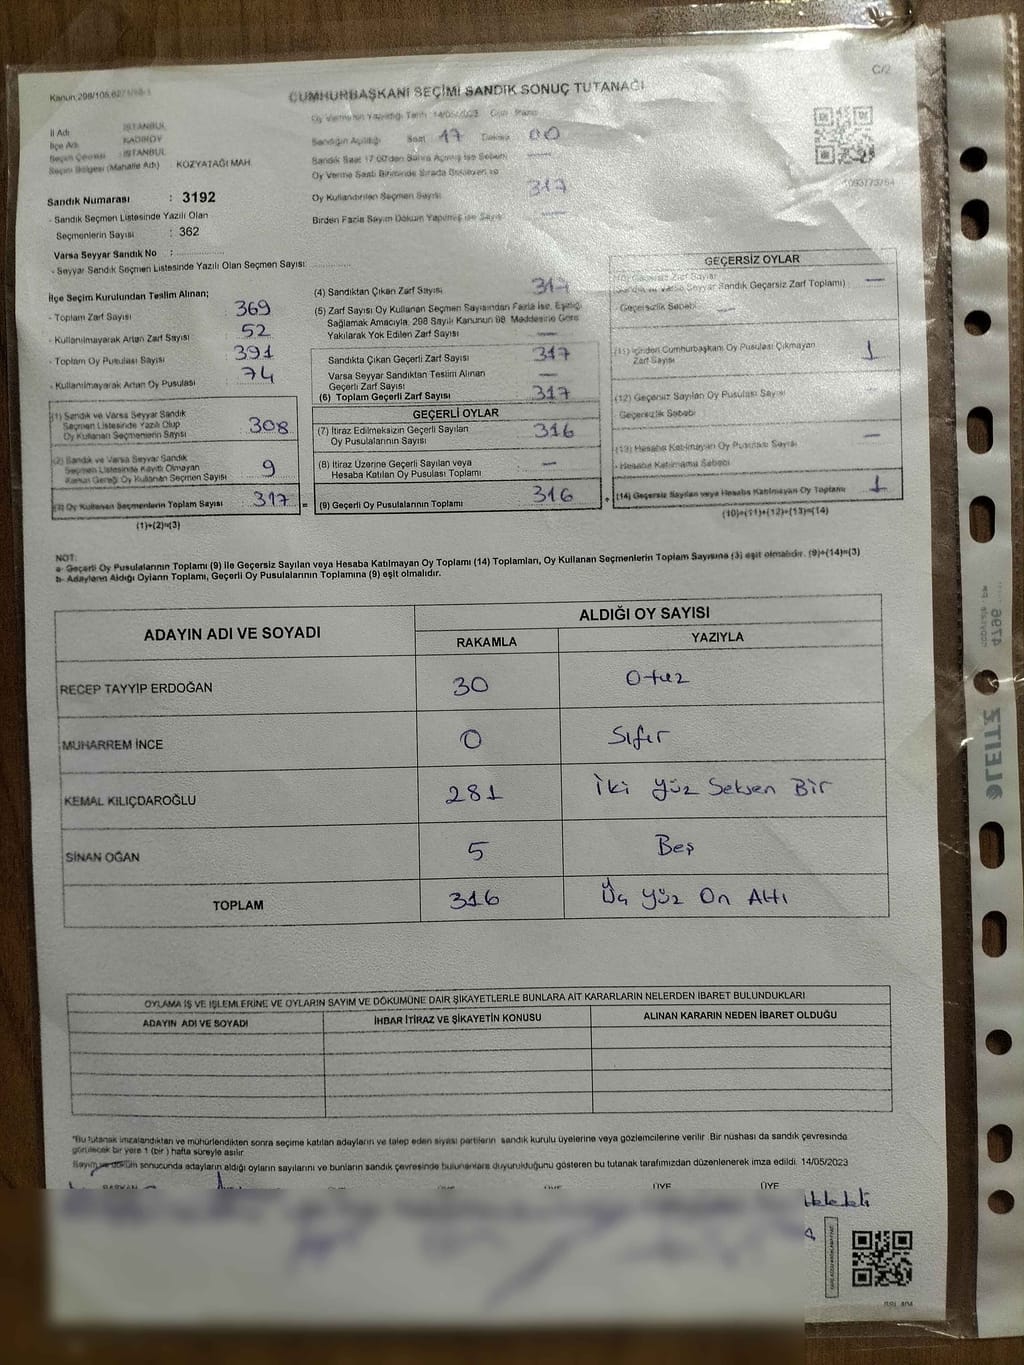 C/2
Kanun:298/105
CUMHURBAŞKANI SEÇİMİ SANDIK SONUÇ TUTANAĞI
Oy Vermenin Yapıldığı Tarih 14/05/2023 Gün Pazar
İl Adı : İSTANBUL
İlçe Adı : KADIKÖY
Seçim Çevresi : İSTANBUL
Seçim Bölgesi (Mahalle Adı) KOZYATAĞI MAH.
Sandığın Açıldığı Saat 17 Dakika 00
Sandık Saat 17:00'den Sonra Açılmış İse Sebebi —
Oy Verme Saati Bitiminde Sırada Bekleyen ve
Oy Kullandırılan Seçmen Sayısı 317
Birden Fazla Sayım Döküm Yapılmış ise Sayısı —
1093773754
Sandık Numarası : 3192
- Sandık Seçmen Listesinde Yazılı Olan
Seçmenlerin Sayısı : 362
Varsa Seyyar Sandık No : ................
- Seyyar Sandık Seçmen Listesinde Yazılı Olan Seçmen Sayısı: ............
İlçe Seçim Kurulundan Teslim Alınan;
- Toplam Zarf Sayısı 369
- Kullanılmayarak Artan Zarf Sayısı 52
- Toplam Oy Pusulası Sayısı 391
- Kullanılmayarak Artan Oy Pusulası 74
(1) Sandık ve Varsa Seyyar Sandık
Seçmen Listesinde Yazılı Olup
Oy Kullanan Seçmenlerin Sayısı 308
(2) Sandık ve Varsa Seyyar Sandık
Seçmen Listesinde Kayıtlı Olmayan
Kanun Gereği Oy Kullanan Seçmen Sayısı 9
(3) Oy Kullanan Seçmenlerin Toplam Sayısı 317 =
(1)+(2)=(3)
(4) Sandıktan Çıkan Zarf Sayısı 317
(5) Zarf Sayısı Oy Kullanan Seçmen Sayısından Fazla İse, Eşitliği
Sağlamak Amacıyla, 298 Sayılı Kanunun 98. Maddesine Göre
Yakılarak Yok Edilen Zarf Sayısı —
Sandıkta Çıkan Geçerli Zarf Sayısı 317
Varsa Seyyar Sandıktan Teslim Alınan
Geçerli Zarf Sayısı —
(6) Toplam Geçerli Zarf Sayısı 317
GEÇERLİ OYLAR
(7) İtiraz Edilmeksizin Geçerli Sayılan
Oy Pusulalarının Sayısı 316
(8) İtiraz Üzerine Geçerli Sayılan veya
Hesaba Katılan Oy Pusulası Toplamı —
(9) Geçerli Oy Pusulalarının Toplamı 316 +
GEÇERSİZ OYLAR
(10) Geçersiz Zarf Sayısı
(Sandık ve Varsa Seyyar Sandık Geçersiz Zarf Toplamı) —
- Geçersizlik Sebebi —
(11) İçinden Cumhurbaşkanı Oy Pusulası Çıkmayan
Zarf Sayısı 1
(12) Geçersiz Sayılan Oy Pusulası Sayısı —
Geçersizlik Sebebi
(13) Hesaba Katılmayan Oy Pusulası Sayısı —
- Hesaba Katılmama Sebebi
(14) Geçersiz Sayılan veya Hesaba Katılmayan Oy Toplamı 1
(10)+(11)+(12)+(13)=(14)
NOT:
a- Geçerli Oy Pusulalarının Toplamı (9) ile Geçersiz Sayılan veya Hesaba Katılmayan Oy Toplamı (14) Toplamları, Oy Kullanan Seçmenlerin Toplam Sayısına (3) eşit olmalıdır. (9)+(14)=(3)
b- Adayların Aldığı Oyların Toplamı, Geçerli Oy Pusulalarının Toplamına (9) eşit olmalıdır.
ADAYIN ADI VE SOYADI ALDIĞI OY SAYISI
RAKAMLA YAZIYLA
RECEP TAYYİP ERDOĞAN 30 Otuz
MUHARREM İNCE 0 Sıfır
KEMAL KILIÇDAROĞLU 281 İki Yüz Seksen Bir
SİNAN OĞAN 5 Beş
TOPLAM 316 Üç Yüz On Altı
OYLAMA İŞ VE İŞLEMLERİNE VE OYLARIN SAYIM VE DÖKÜMÜNE DAİR ŞİKAYETLERLE BUNLARA AİT KARARLARIN NELERDEN İBARET BULUNDUKLARI
ADAYIN ADI VE SOYADI İHBAR İTİRAZ VE ŞİKAYETİN KONUSU ALINAN KARARIN NEDEN İBARET OLDUĞU
*Bu tutanak imzalandıktan ve mühürlendikten sonra seçime katılan adayların ve talep eden siyasi partilerin sandık kurulu üyelerine veya gözlemcilerine verilir .Bir nüshası da sandık çevresinde
görülecek bir yere 1 (bir ) hafta süreyle asılır.
Sayım ve döküm sonucunda adayların aldığı oyların sayılarını ve bunların sandık çevresinde bulunanlara duyurulduğunu gösteren bu tutanak tarafımızdan düzenlenerek imza edildi. 14/05/2023
BAŞKAN ÜYE ÜYE ÜYE ÜYE ÜYE
LEITZ
4796